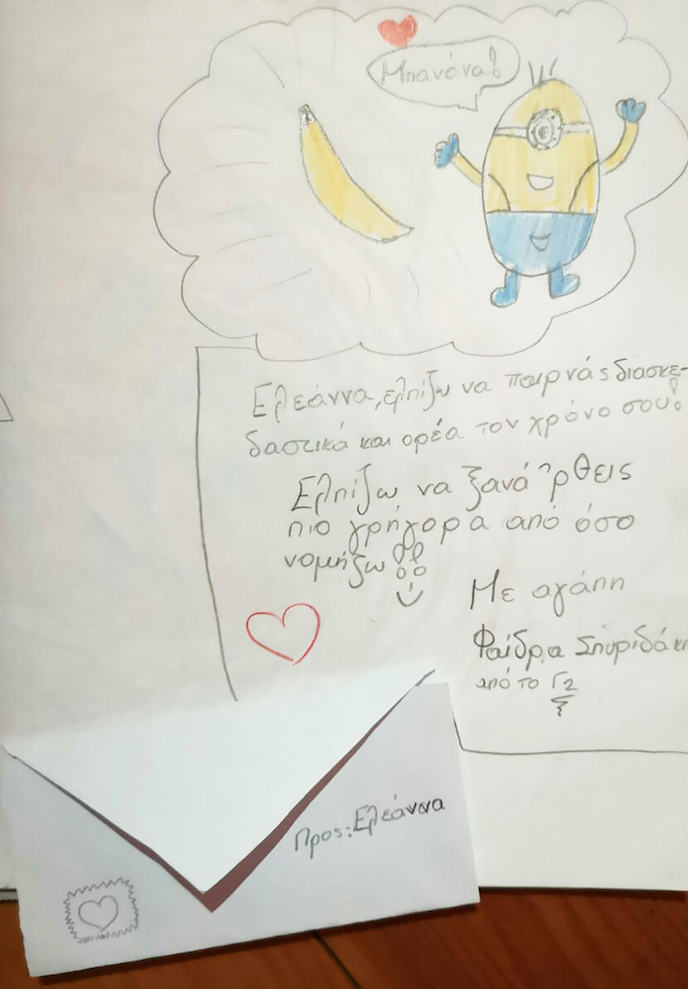 Μπανάνα!
Ελεάννα, ελπίζω να παιρνάς διασκε-
δαστικά και ορέα τον χρόνο σου!
Ελπίζω να ξανά 'ρθεις
πιο γρήγορα από όσο
νομήζω!!
Με αγάπη
Φαίδρα Σπυριδάκη
από το Γ2
Προς: Ελεάννα